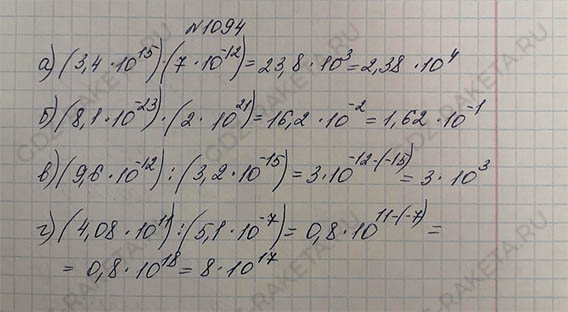 №1094
а) (3,4 · 10¹⁵) · (7 · 10⁻¹²) = 23,8 · 10³ = 2,38 · 10⁴
б) (8,1 · 10⁻²³) · (2 · 10²¹) = 16,2 · 10⁻² = 1,62 · 10⁻¹
в) (9,6 · 10⁻¹²) : (3,2 · 10⁻¹⁵) = 3 · 10⁻¹²⁻⁽⁻¹⁵⁾ = 3 · 10³
г) (4,08 · 10¹¹) : (5,1 · 10⁻⁷) = 0,8 · 10¹¹⁻⁽⁻⁷⁾ =
= 0,8 · 10¹⁸ = 8 · 10¹⁷
GDZ-RAKETA.RU